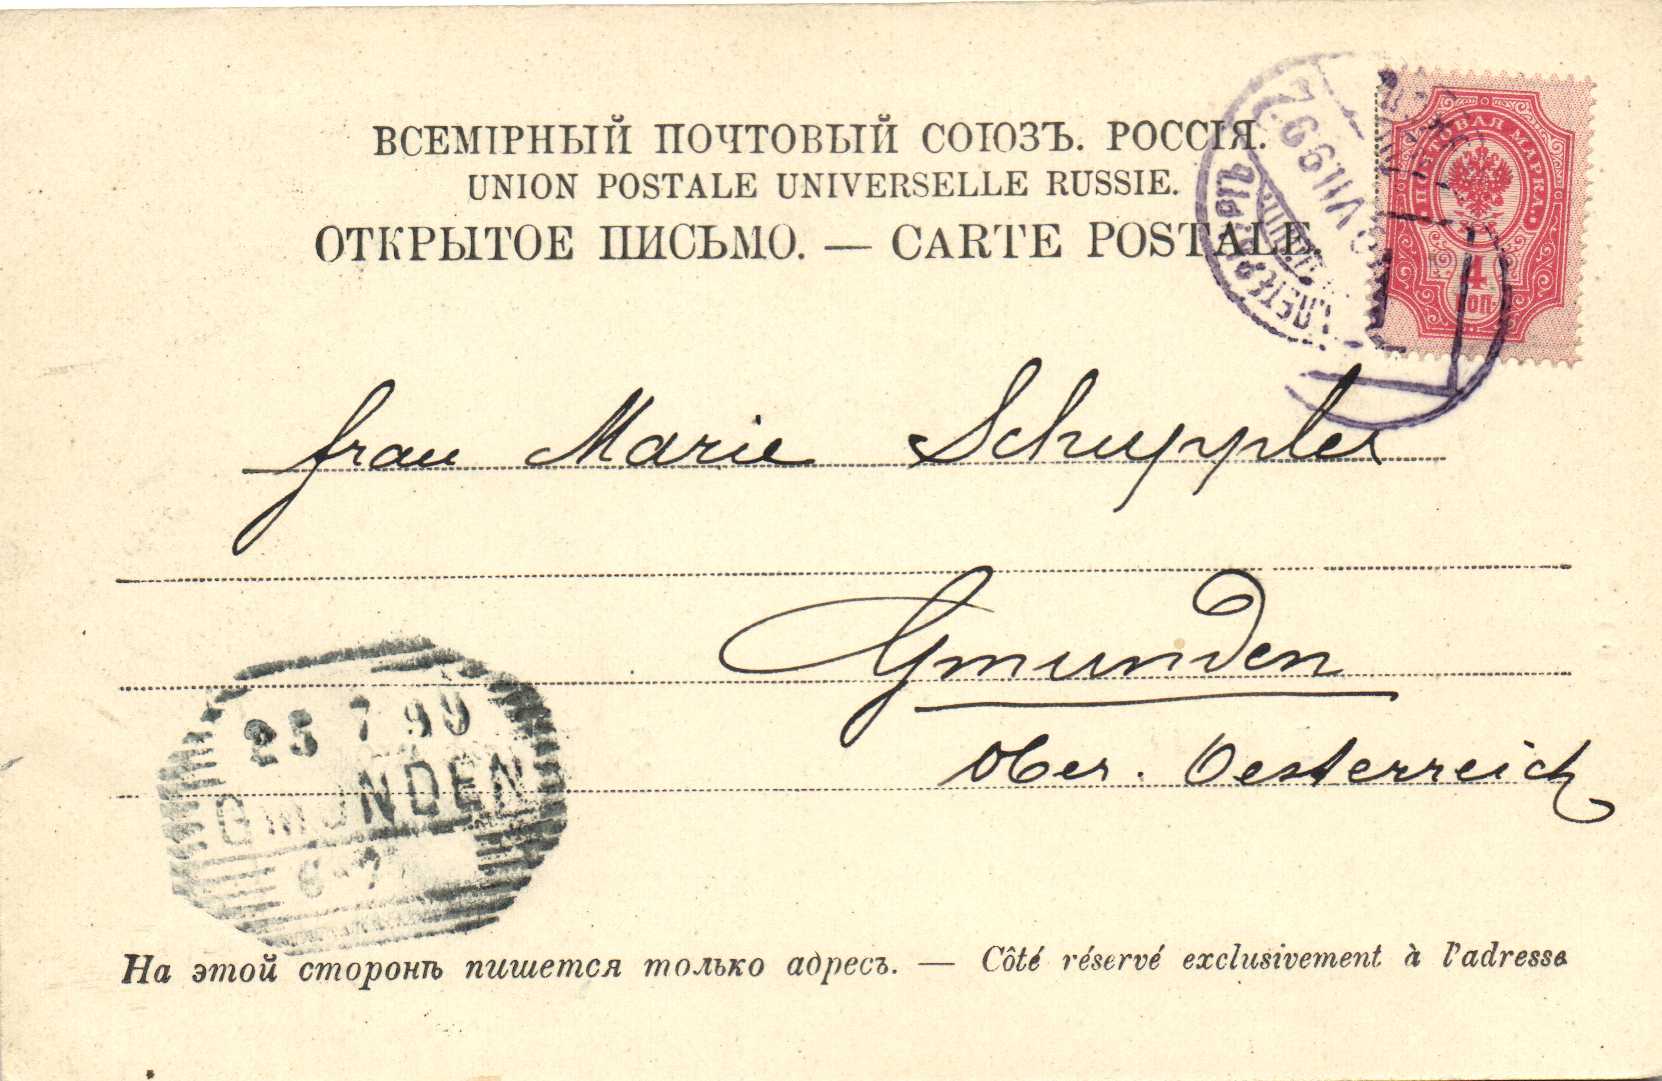 ВСЕМІРНЫЙ ПОЧТОВЫЙ СОЮЗЪ. РОССІЯ.
UNION POSTALE UNIVERSELLE RUSSIE.
ОТКРЫТОЕ ПИСЬМО. — CARTE POSTALE.
ПОЧТОВАЯ МАРКА.
4
КОП.
Frau Marie Schuppler
Gmunden
Ober. Oesterreich
25 7 99
GMUNDEN
6-7
На этой сторонѣ пишется только адресъ. — Côté réservé exclusivement à l'adresse